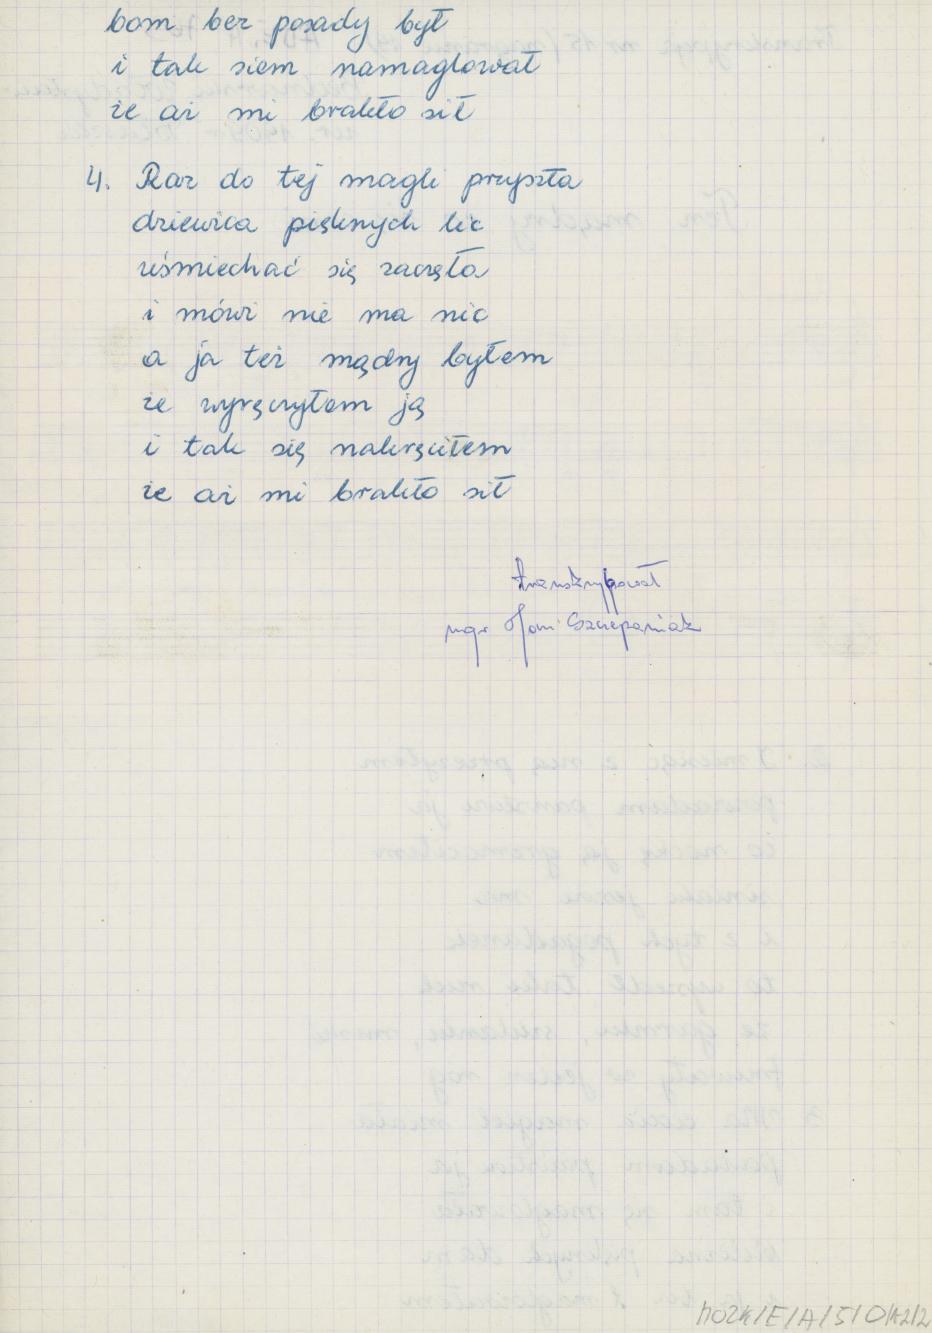 bom bez posady był
i tak siem namaglował
że aż mi brakło sił
4. Raz do tej magli przyszła
dziewica pięknych lic
uśmiechać się zaczęła
i mówi nie ma nic
a ja też mądry byłem
że wyręczyłem ją
i tak się nakręciłem
że aż mi brakło sił
transkrybował
mgr Szczepaniak